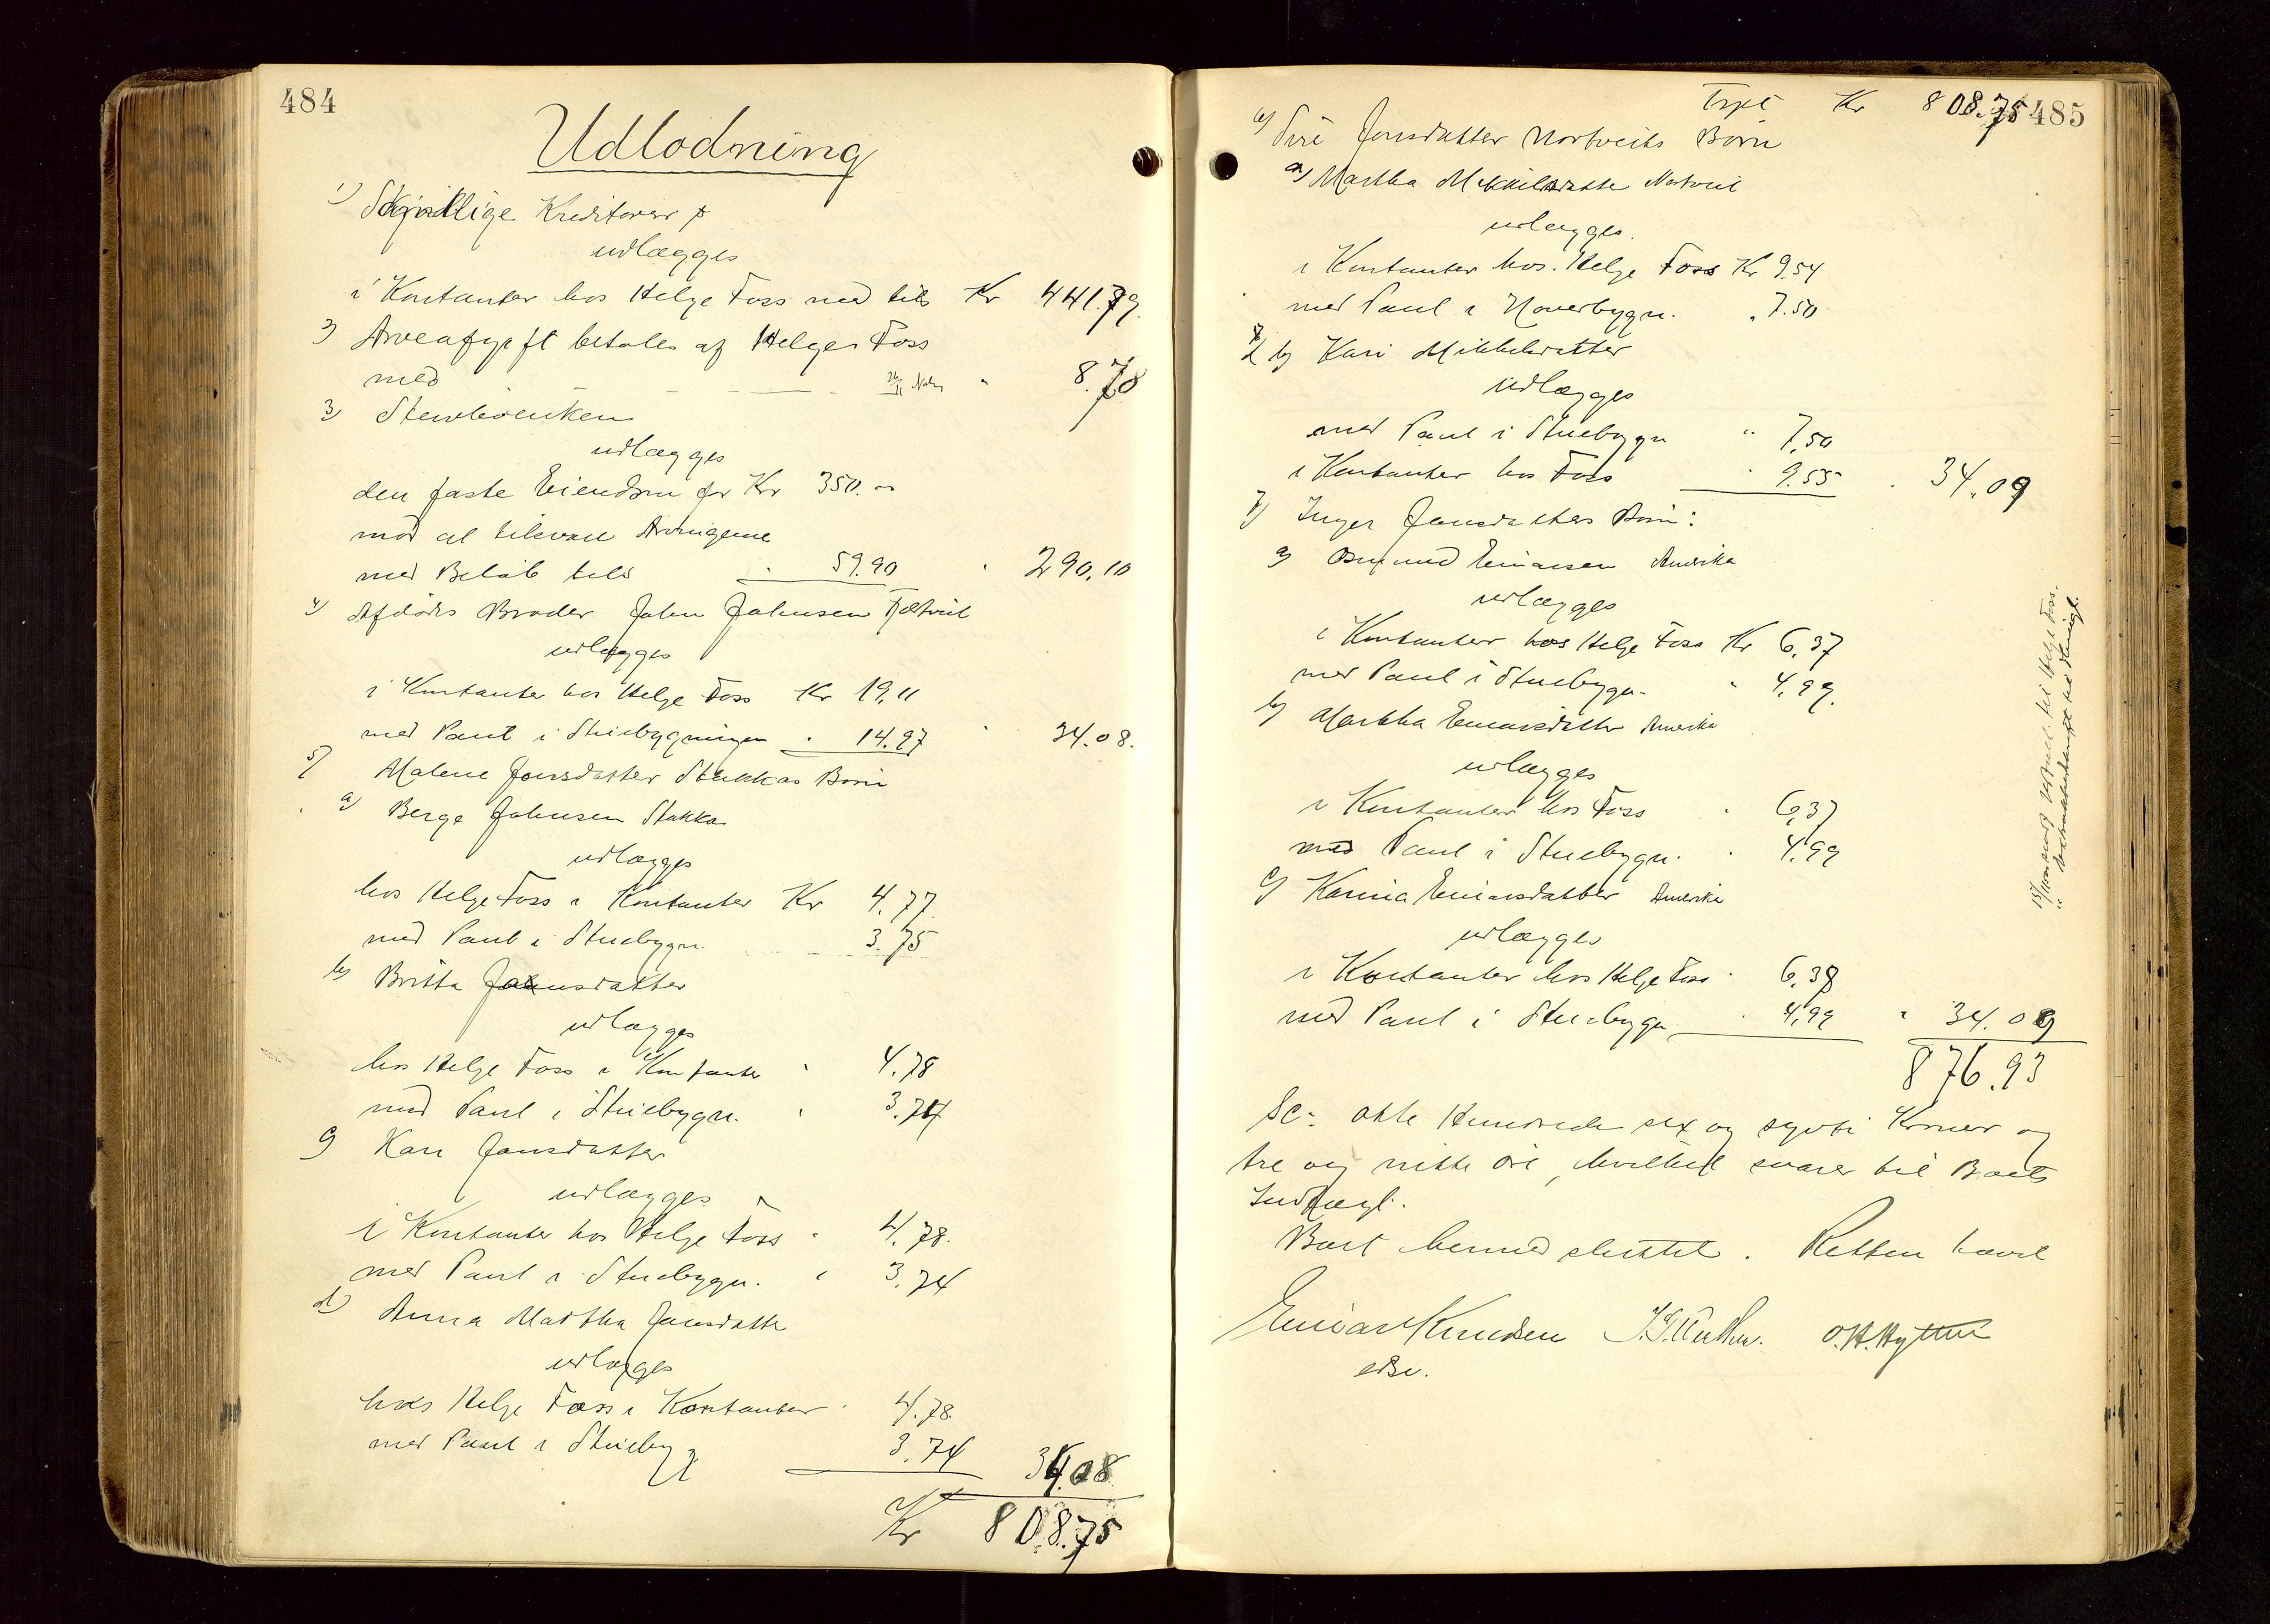 484
Udlodning
1) Skjellige Kreditorer
udlægges
i Kontanter hos Helge Foss med tils Kr 441.79.
2) Arveafgift betales af Helge Foss
med " 8.78
3) Stervboenken
udlægges
den faste Eiendom for Kr 350.—
mod at tilsvare Arvingerne
med Beløb tils " 59.90 " 290.10
4) Afdødes Broder John Johnsen Tjeltveit
udlægges
i Kontanter hos Helge Foss Kr 19.11
med Pant i Stuebygningen " 14.97 " 34.08.
5) Malene Jonsdatter Stakkas Børn
a) Berge Johnsen Stakka
udlægges
hos Helge Foss i Kontanter Kr 4.77.
med Pant i Stuebygn. 3.75
b) Britta Johnsdatter
udlægges
hos Helge Foss i Kontanter " 4.78
med Pant i Stuebygn. " 3.74
c) Kari Jonsdatter
udlægges
i Kontanter hos Helge Foss " 4.78.
med Pant i Stuebygn. " 3.74
d) Anna Martha Jonsdatter
udlægges
hos Helge Foss i Kontanter " 4.78.
med Pant i Stueby 3.74 34.08
Kr 808.75
Trpt Kr 808.75 485
6) Siri Jonsdatter Nortveits Børn
a) Martha Mikkelsdatter Nortveit
udlægges.
i Kontanter hos Helge Foss Kr 9.54
med Pant i Hovedbygn. " 7.50
b) Kari Mikkelsdatter
udlægges
med Pant i Stuebygn " 7.50
i Kontanter hos Foss " 9.55 " 34.09
7) Inger Jonsdatters Børn:
a) Osmund Einarsen Amerika
udlægges
i Kontanter hos Helge Foss Kr 6.37
med Pant i Stuebygn. " 4.99.
b) Martha Einarsdatter Amerika
udlægges
i Kontanter hos Foss " 6.37
med Pant i Stuebygn. " 4.99
c) Karina Einarsdatter Amerika
udlægges
i Kontanter hos Helge Foss " 6.38
med Pant i Stuebygn " 4.99 " 34.09
876.93
Sc: otte Hundrede sex og sytti Kroner og
tre og nitti øre, hvilket svarer til Boets
Indtægt.
Boet hermed sluttet. Retten hævet
Einar Knudsen O.H.Hytten
edsv.